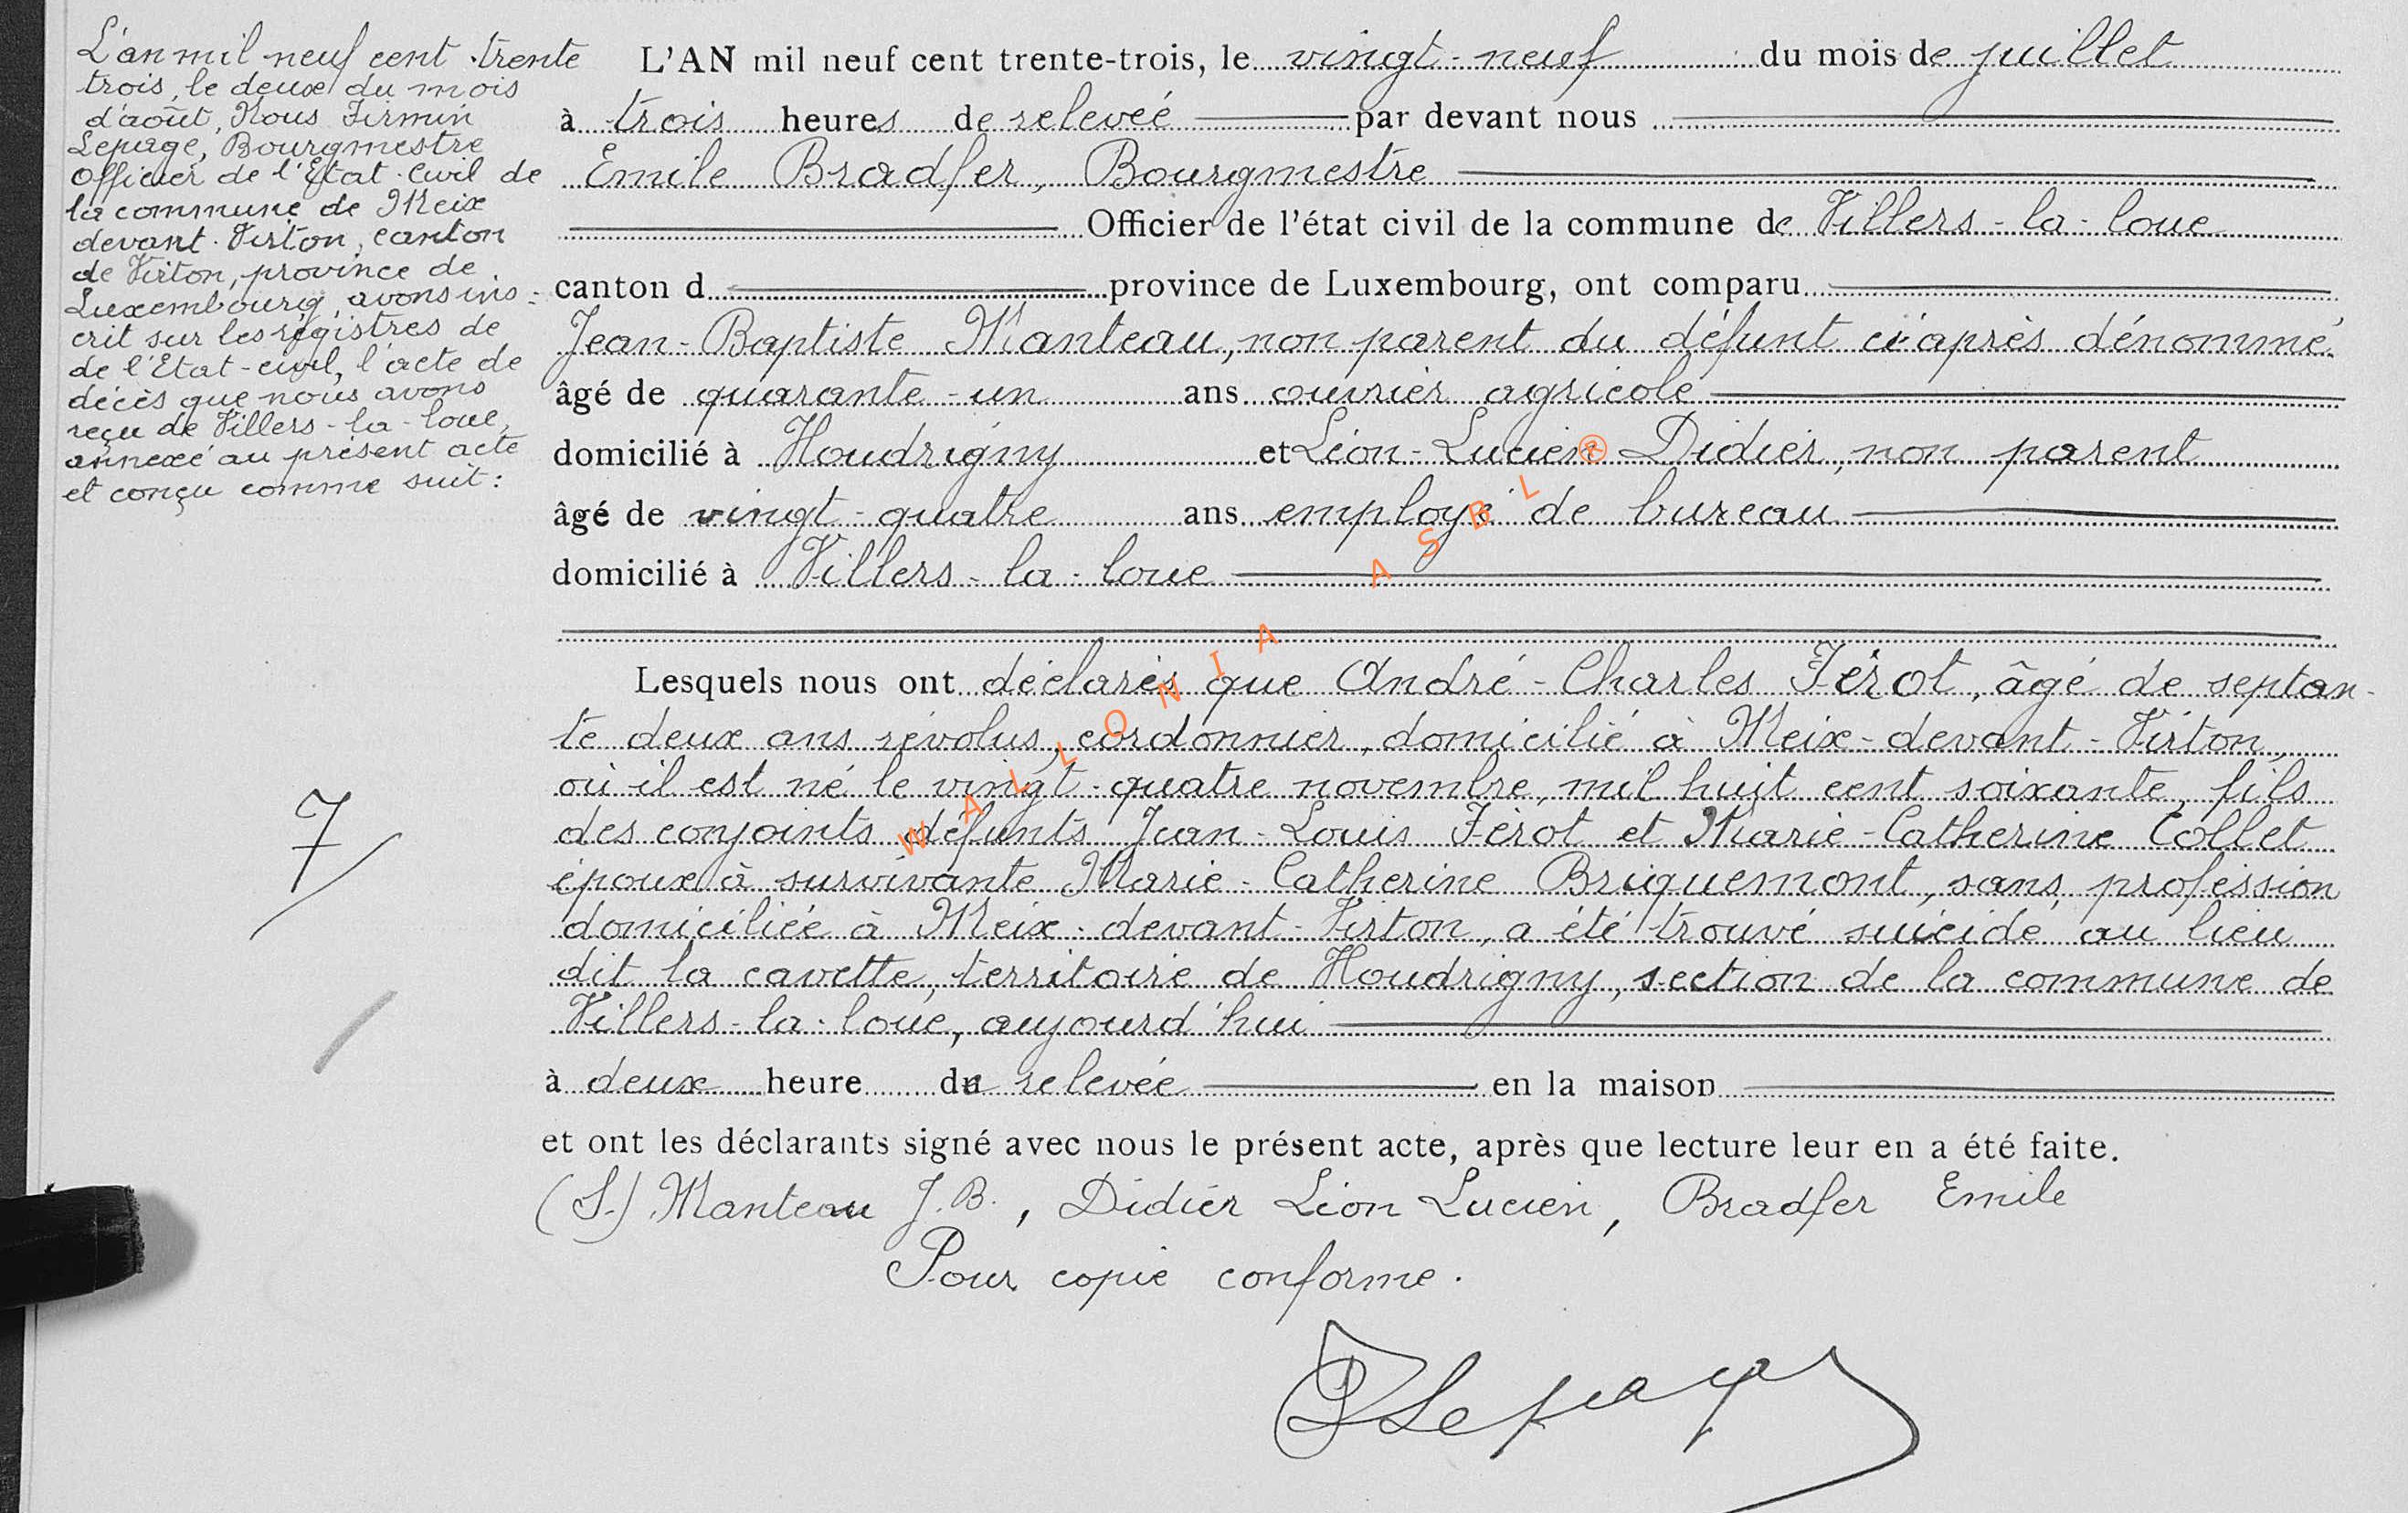 L'an mil neuf cent trente
trois, le deux du mois
d'août, Nous Firmin
Lepage, Bourgmestre
Officier de l'Etat-Civil de
la commune de Meix
devant-Virton, canton
de Virton, province de
Luxembourg, avons ins-
crit sur les régistres de
de l'Etat-civil, l'acte de
décès que nous avons
reçu de Villers-la-loue,
annexé au présent acte
et conçu comme suit:
7
L'AN mil neuf cent trente-trois, le vingt-neuf du mois de juillet
à trois heures de relevée par devant nous
Emile Bradfer, Bourgmestre
Officier de l'état civil de la commune de Villers-la-loue
canton d province de Luxembourg, ont comparu
Jean-Baptiste Manteau, non parent du défunt ci-après dénommé
âgé de quarante-un ans ouvrier agricole
domicilié à Houdrigny et Léon-Lucien Didier, non parent
âgé de vingt-quatre ans employé de bureau
domicilié à Villers-la-loue
Lesquels nous ont déclarés que André-Charles Férot, âgé de septan-
te deux ans révolus, cordonnier, domicilié à Meix-devant-Virton,
où il est né le vingt-quatre novembre, mil huit cent soixante, fils
des conjoints défunts Jean-Louis Férot et Marie-Catherine Collet
époux à survivante Marie-Catherine Briquemont, sans profession
domiciliée à Meix-devant-Virton, a été trouvé suicidé au lieu
dit la cavette, territoire de Houdrigny, section de la commune de
Villers-la-loue, aujourd'hui
à deux heure de relevée en la maison
et ont les déclarants signé avec nous le présent acte, après que lecture leur en a été faite.
(S.) Manteau J.B., Didier Léon Lucien, Bradfer Emile
Pour copie conforme.
F Lepage
WALLONIA ASBL ®